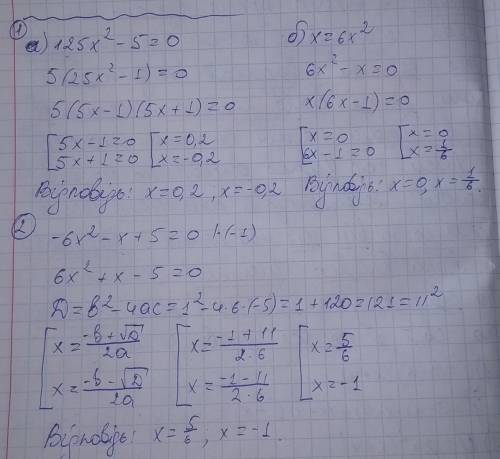 ① а) 125x² - 5 = 0
5(25x² - 1) = 0
5(5x - 1)(5x + 1) = 0
[5x - 1 = 0 [x = 0,2
[5x + 1 = 0 [x = -0,2
Відповідь: x = 0,2, x = -0,2
б) x = 6x²
6x² - x = 0
x(6x - 1) = 0
[x = 0 [x = 0
[6x - 1 = 0 [x = 1/6
Відповідь: x = 0, x = 1/6.
② -6x² - x + 5 = 0 |·(-1)
6x² + x - 5 = 0
D = b² - 4ac = 1² - 4·6·(-5) = 1 + 120 = 121 = 11²
[x = (-b + √D)/2a [x = (-1 + 11)/(2·6) [x = 5/6
[x = (-b - √D)/2a [x = (-1 - 11)/(2·6) [x = -1
Відповідь: x = 5/6, x = -1.